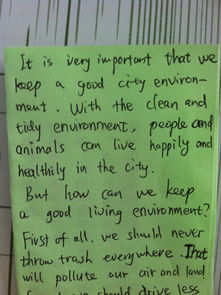 It is very important that we
keep a good city environ-
ment. With the clean and
tidy environment, people and
animals can live happily and
healthily in the city.
But how can we keep
a good living environment?
First of all, we should never
throw trash everywhere. That
will pollute our air and land
should drive less